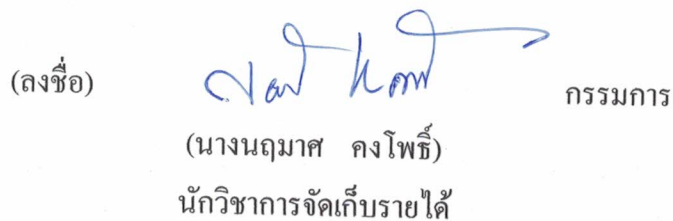 (ลงชื่อ) กรรมการ
(นางนฤมาศ คงโพธิ์)
นักวิชาการจัดเก็บรายได้